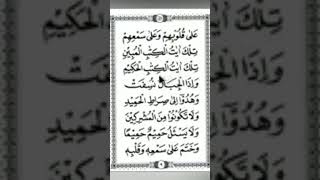 عَلٰى قُلُوبِهِمْ وَعَلٰى سَمْعِهِمْ
تِلْكَ اٰيٰتُ الْكِتٰبِ الْمُبِيْنِ
تِلْكَ اٰيٰتُ الْكِتٰبِ الْحَكِيْمِ
وَاِذَا الْجِبَالُ نُسِفَتْ
وَهُدُوْٓا اِلٰى صِرَاطِ الْحَمِيْدِ
وَلَا تَكُوْنُوْا مِنَ الْمُشْرِكِيْنَ
وَلَا يَسْئَلُ حَمِيْمٌ حَمِيْمًا
وَخَتَمَ عَلٰى سَمْعِهٖ وَقَلْبِهٖ